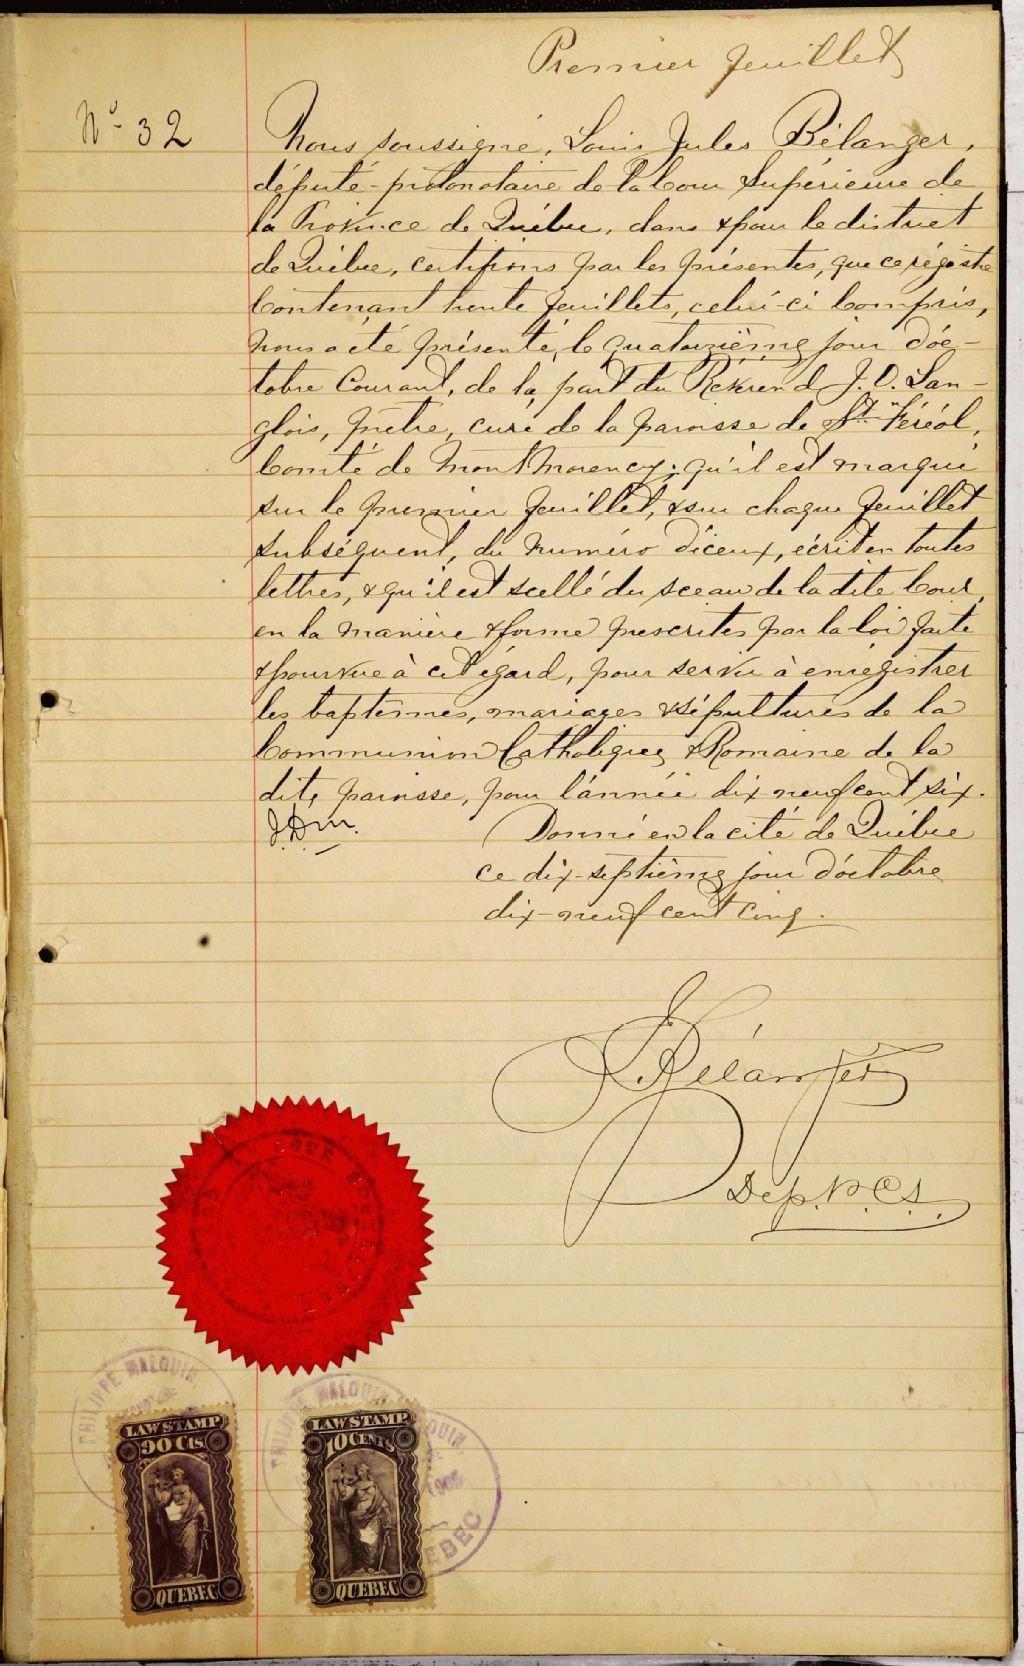 Premier feuillet
No 32
Nous soussigné, Louis Jules Bélanger,
député-protonotaire de la Cour Supérieure de
la Province de Québec, dans & pour le district
de Québec, certifions par les présentes, que ce régistre
Contenant trente feuillets, celui-ci compris,
nous a été présenté, le quatorzième jour d'oc-
tobre Courant, de la part du Révérend J. O. Lan-
glois, prêtre, curé de la paroisse de St. Féréol,
Comté de Montmorency; qu'il est marqué
sur le premier feuillet, & sur chaque feuillet
subséquent, du numéro d'iceux, écrit en toutes
lettres, & qu'il est scellé du sceau de la dite Cour,
en la manière & forme prescrites par la loi faite
& pourvue à cet égard, pour servir à enrégistrer
les baptêmes, mariages & sépultures de la
Communion Catholique & Romaine de la
dite paroisse, pour l'année dix-neuf cent six.
J.D.M.
Donné en la cité de Québec
ce dix-septième jour d'octobre
dix-neuf cent cinq.
Bélanger
Dep. P.C.S.
PHILIPPE MALOUIN
LAW STAMP
90 Cts.
QUEBEC
PHILIPPE MALOUIN
1905
QUEBEC
LAW STAMP
10 CENTS
QUEBEC